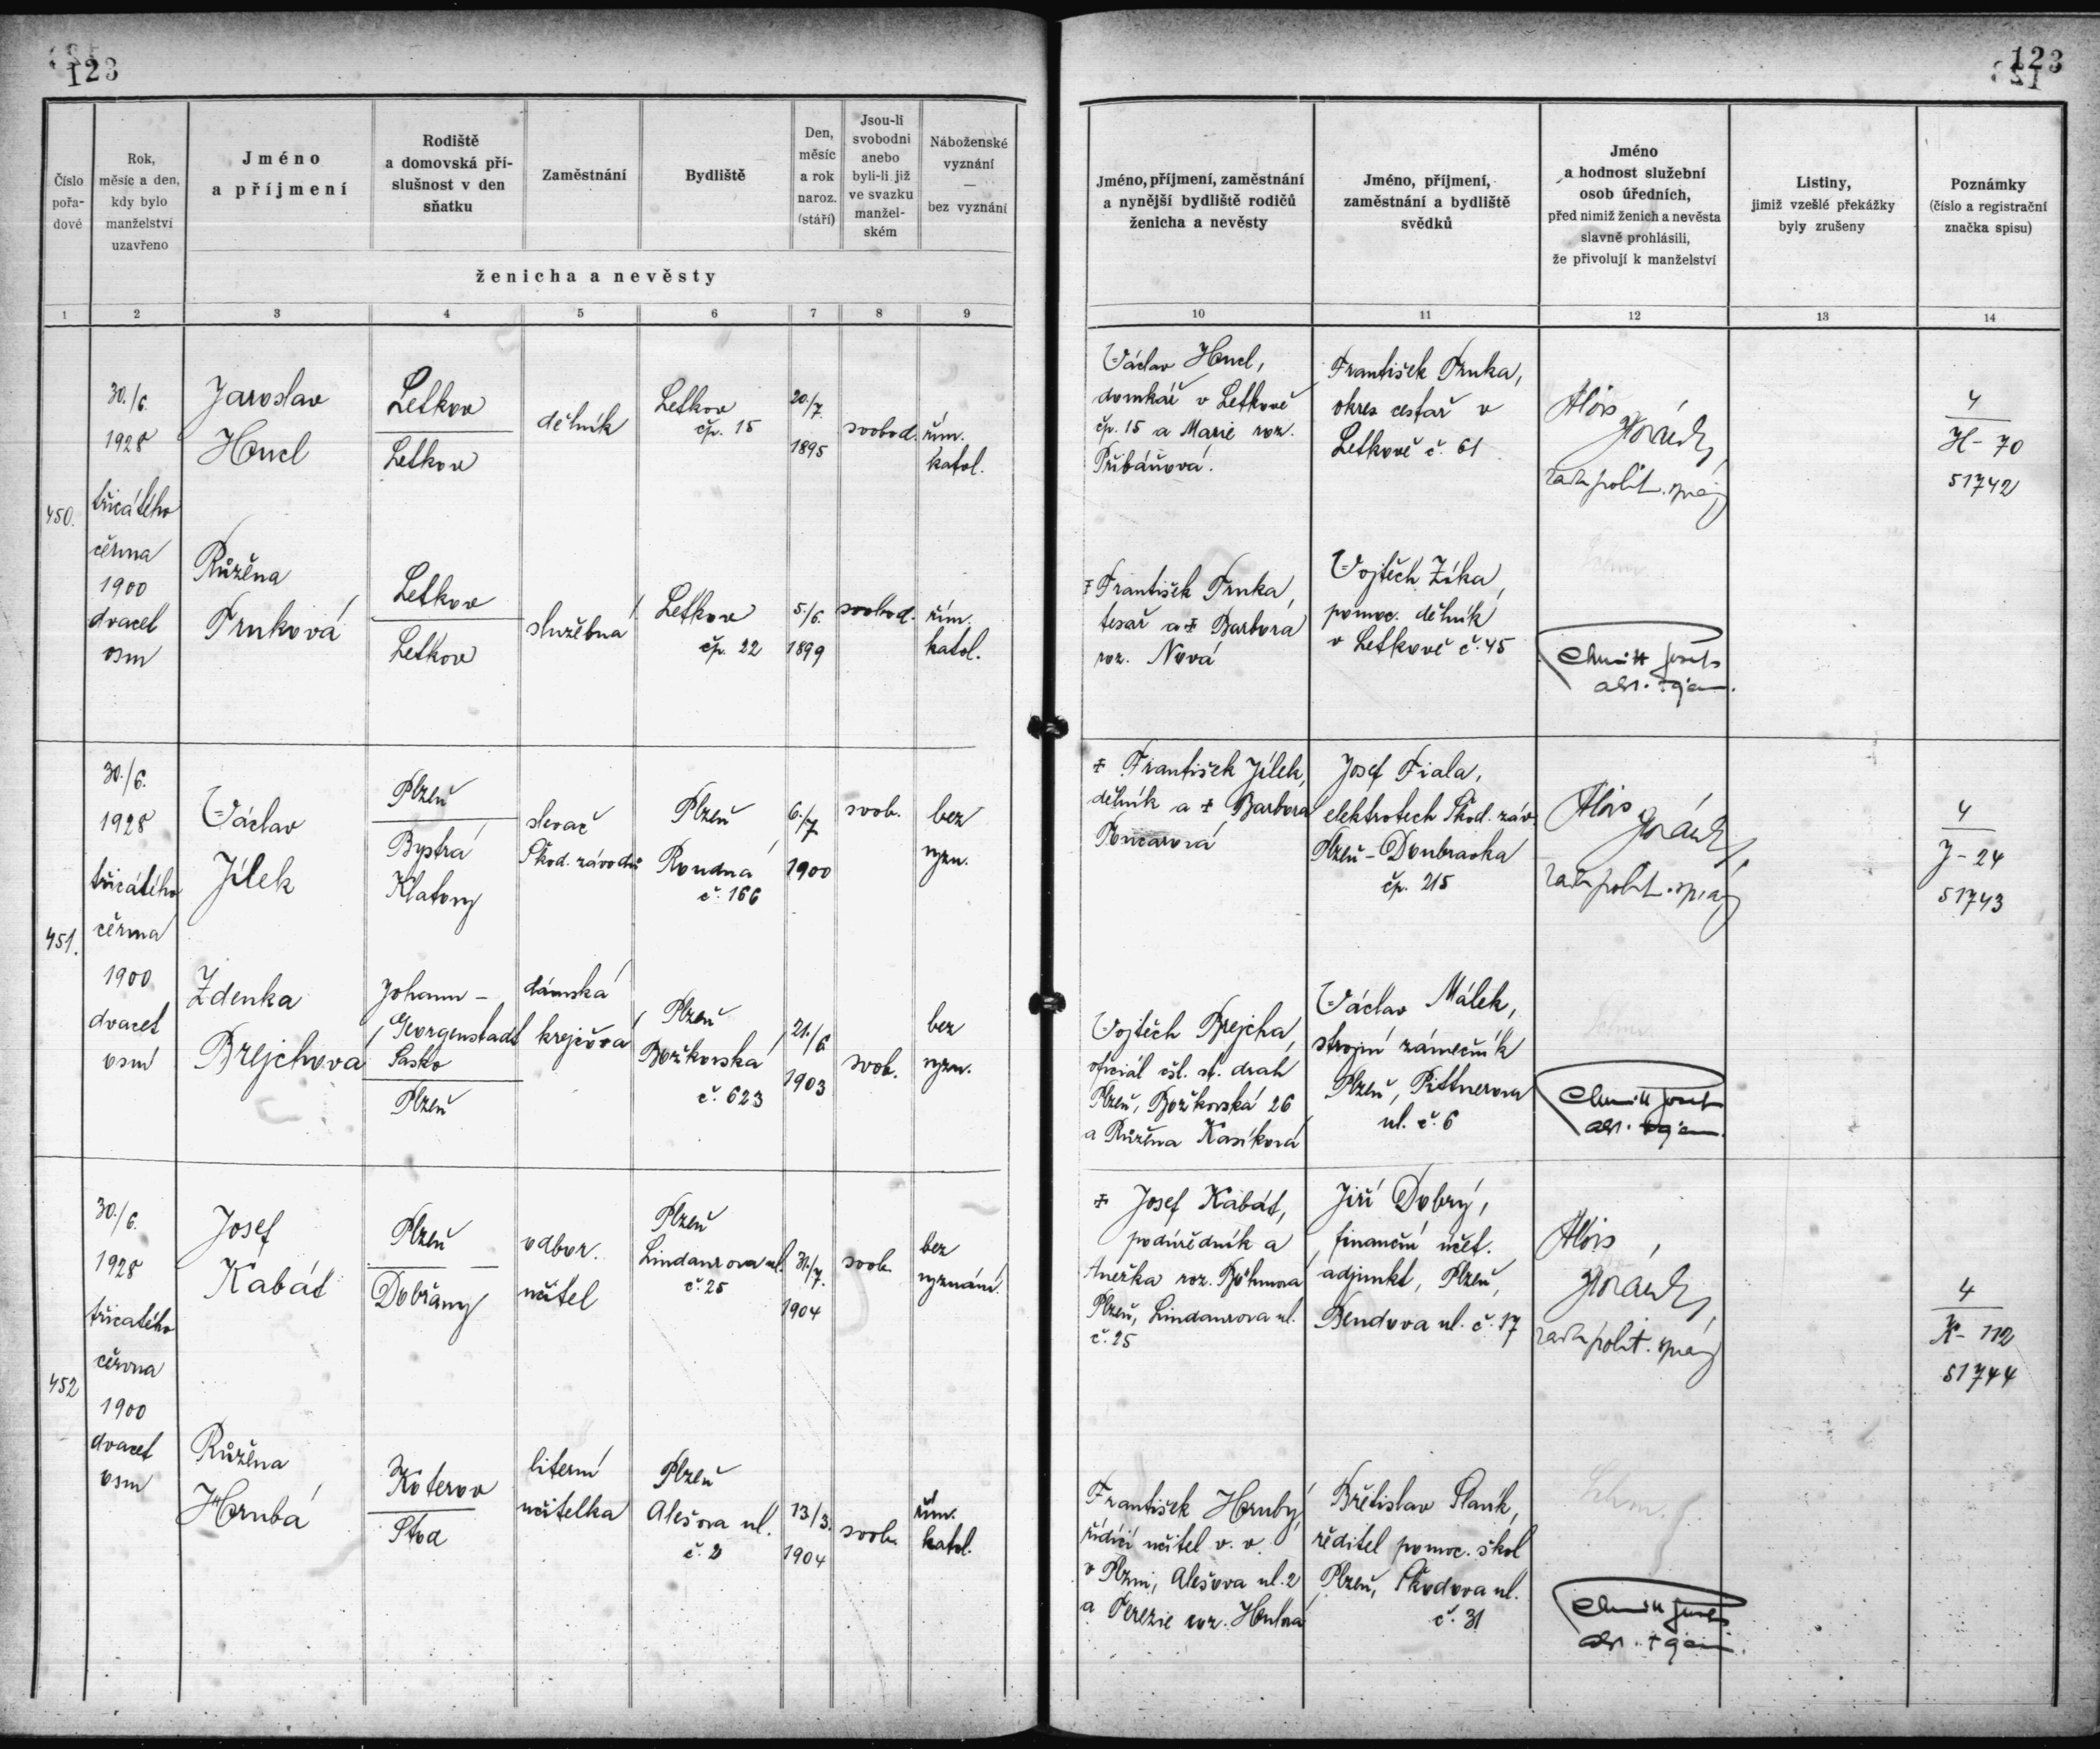 123
123
Číslo pořa- dové
Rok, měsíc a den, kdy bylo manželství uzavřeno
Jméno a příjmení
Rodiště a domovská pří- slušnost v den sňatku
Zaměstnání
Bydliště
Den, měsíc a rok naroz. (stáří)
Jsou-li svobodni anebo byli-li již ve svazku manžel- ském
Náboženské vyznání — bez vyznání
ženicha a nevěsty
Jméno, příjmení, zaměstnání a nynější bydliště rodičů ženicha a nevěsty
Jméno, příjmení, zaměstnání a bydliště svědků
Jméno a hodnost služební osob úředních, před nimiž ženich a nevěsta slavně prohlásili, že přivolují k manželství
Listiny, jimiž vzešlé překážky byly zrušeny
Poznámky (číslo a registrační značka spisu)
1 2 3 4 5 6 7 8 9 10 11 12 13 14
450.
30./6.
1928
třicátého
června
1900
dvacet
osm
Jaroslav
Hucl
Letkov
Letkov
dělník
Letkov
čp. 15
20./7.
1895
svobod.
řím.
katol.
Václav Hucl,
domkář v Letkově
čp. 15 a Marie roz.
Přibáňová.
František Trnka,
okres cestař v
Letkově č. 61
Alois
rada polit. správy
4
H - 70
51742
Růžena
Trnková
Letkov
Letkov
služebná
Letkov
čp. 22
5./6.
1899
svobod.
řím.
katol.
+ František Trnka,
tesař a + Barbora
roz. Nová
Vojtěch Zíka,
pomoc. dělník
v Letkově č. 45
451.
30./6.
1928
třicátého
června
1900
dvacet
osm
Václav
Jílek
Plzeň
Bystrá
Klatovy
slevač
Škod. závodů
Plzeň
Roudná
č. 166
6./7
1900
svob.
bez
vyzn.
+ František Jílek,
dělník a + Barbora
Poncarová
Josef Fiala,
elektrotech Škod. záv.
Plzeň - Doubravka
čp. 215
Alois
rada polit. správy
4
J - 24
51743
Zdenka
Brejchova
Johann -
Georgenstadt
Sasko
Plzeň
dámská
krejčová
Plzeň
Božkovská
č. 623
21./6.
1903
svob.
bez
vyzn.
Vojtěch Brejcha,
oficiál čsl. st. drah
Plzeň, Božkovská 26
a Růžena Kasíková
Václav Málek,
strojní zámečník
Plzeň, Pittnerova
ul. č. 6
452
30./6.
1928
třicatého
června
1900
dvacet
osm
Josef
Kabát
Plzeň
Dobřany
odbor.
učitel
Plzeň
Lindaurova ul.
č. 25
31./7.
1904
svob.
bez
vyznání.
+ Josef Kabát,
podúředník a
Anežka roz. Böhmova
Plzeň, Lindaurova ul.
č. 25
Jiří Dobrý,
finanční účet.
adjunkt, Plzeň,
Bendova ul. č. 17
Alois
rada polit. správy
4
K - 112
51744
Růžena
Hrubá
Koterov
Stod
literní
učitelka
Plzeň
Alešova ul.
č. 2
13./3.
1904
svob.
řím.
katol.
František Hrubý,
řídící učitel v. v.
v Plzni, Alešova ul. 2
a Terezie roz.
Břetislav Slaník,
ředitel pomoc. škol
Plzeň, Škodova ul.
č. 31